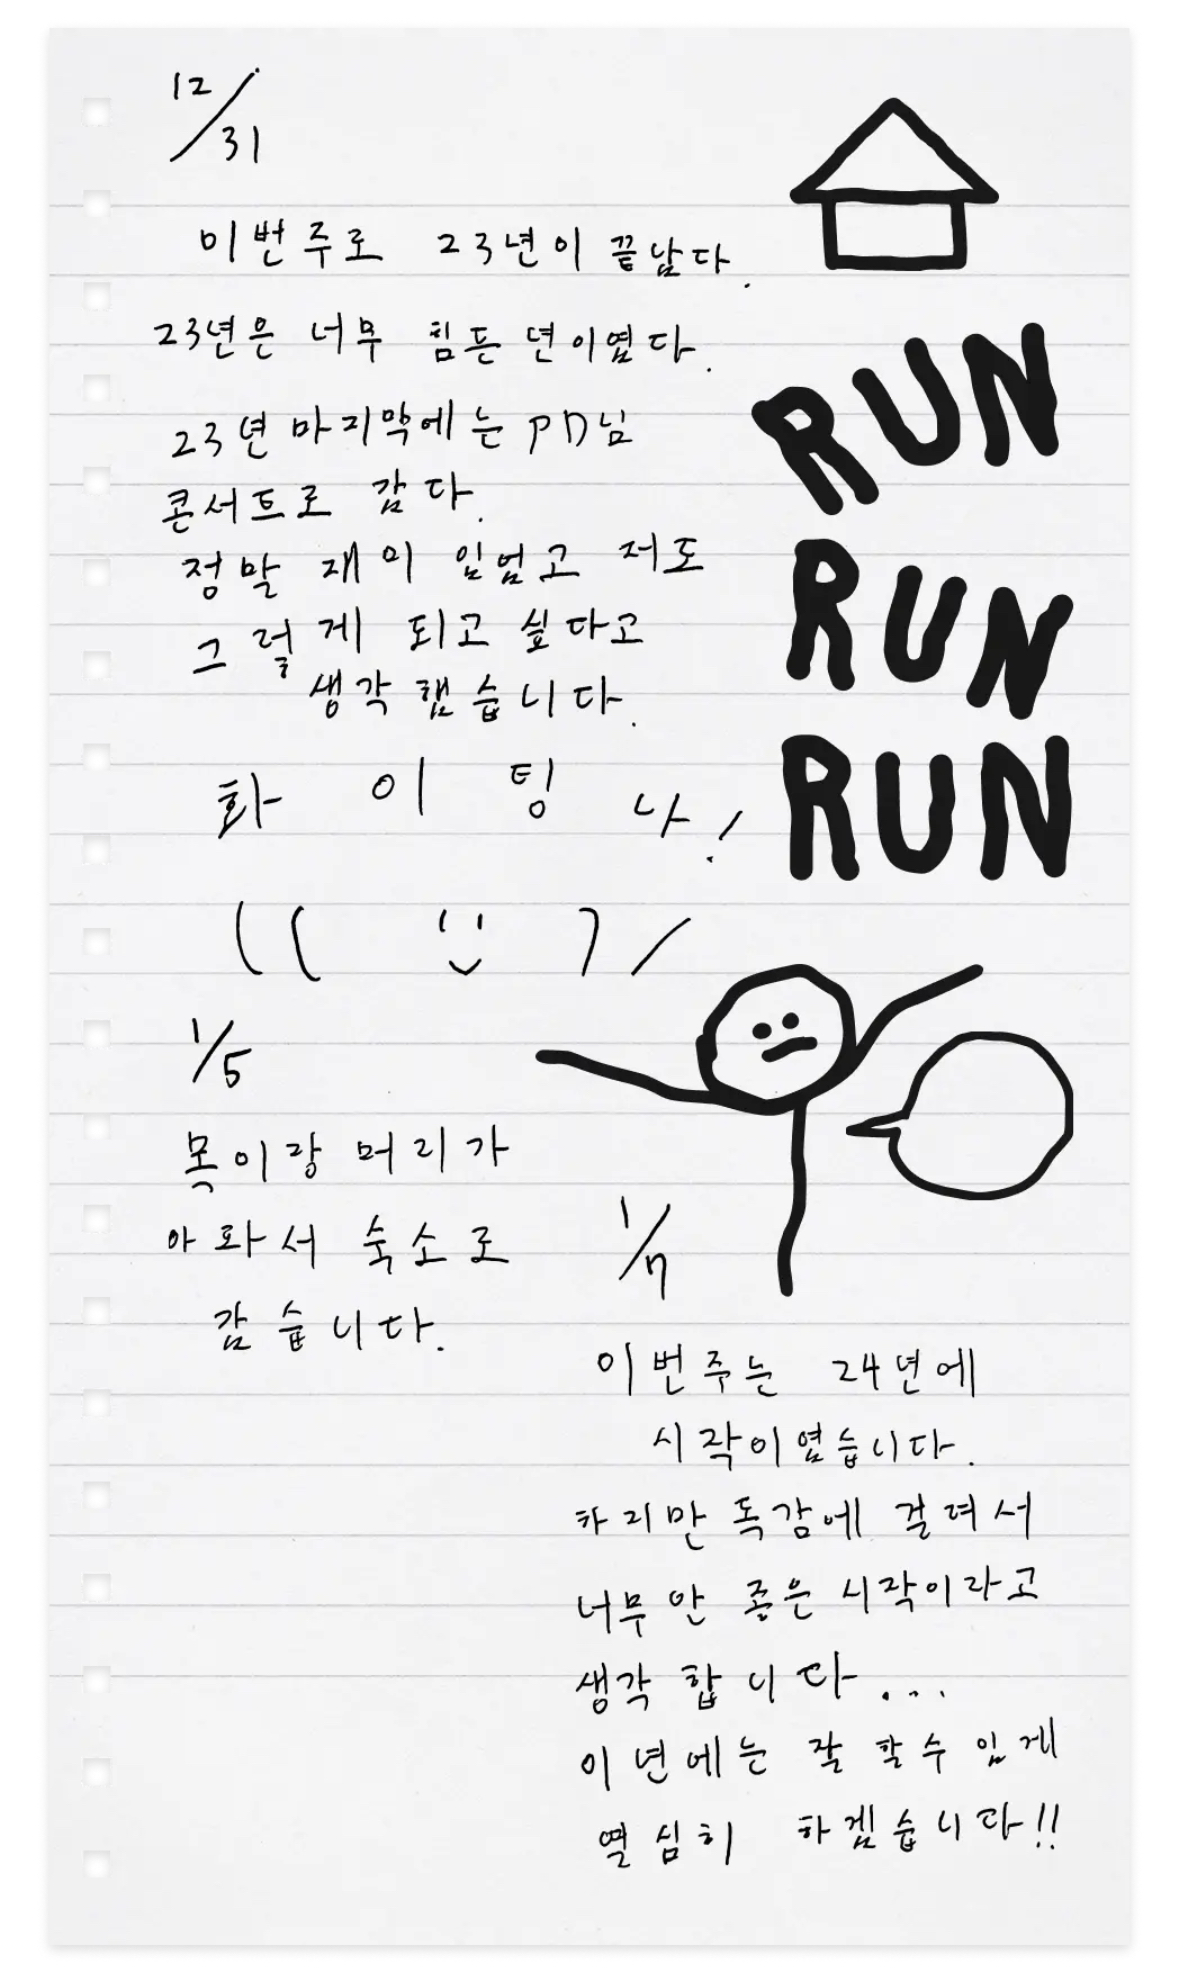 12/31
이번주로 23년이 끝났다.
23년은 너무 힘든 년이였다.
23년 마지막에는 PD님
콘서트로 갔다.
정말 재미 있었고 저도
그렇게 되고 싶다고
생각했습니다.
화이팅 나!
RUN
RUN
RUN
1/5
목이랑 머리가
아파서 숙소로
갔습니다.
1/7
이번주는 24년에
시작이였습니다.
하지만 독감에 걸려서
너무 안 좋은 시작이라고
생각 합니다...
이 년에는 잘 할수 있게
열심히 하겠습니다!!